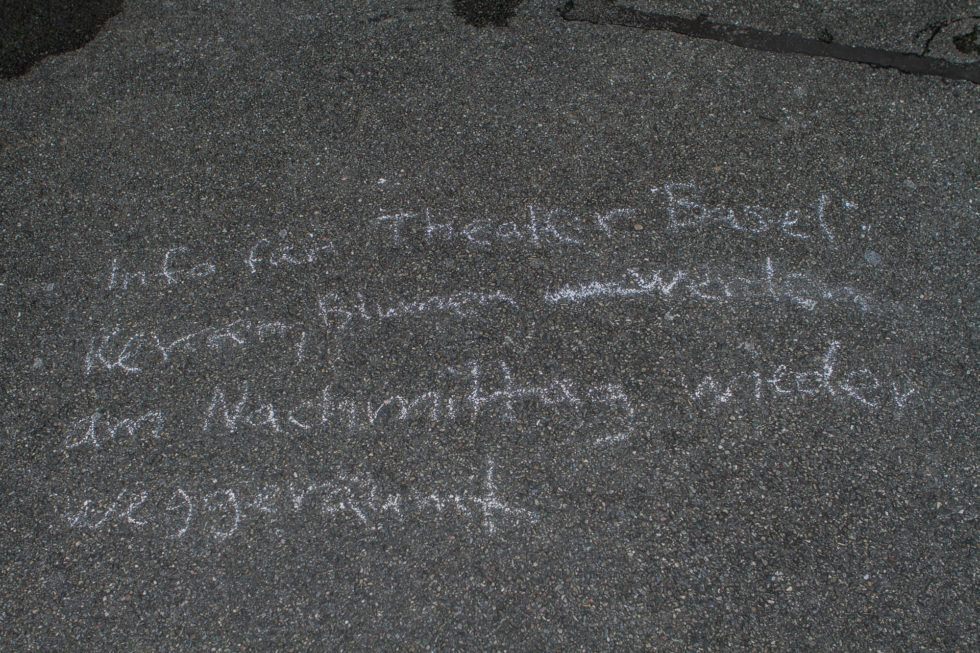 Info für Theater Basel,
Kerzen, Blumen werden
am Nachmittag wieder
weggeräumt